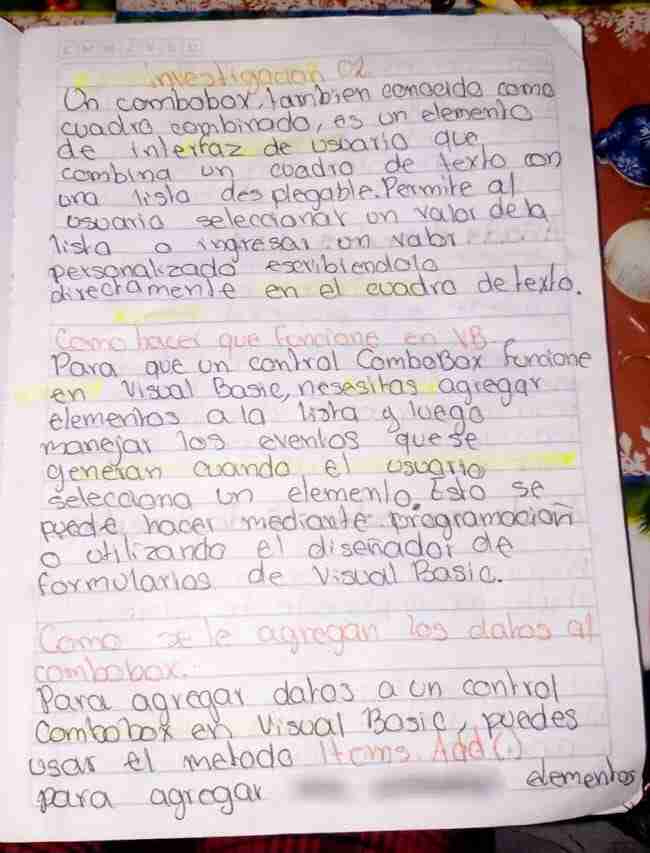 investigacion 02
Un combobox, tambien conocido como
cuadro combinado, es un elemento
de interfaz de usuario que
combina un cuadro de texto con
una lista desplegable. Permite al
usuario seleccionar un valor de la
lista o ingresar un valor
personalizado escribiendolo
directamente en el cuadro de texto.
Como hacer que funcione en VB
Para que un control ComboBox funcione
en Visual Basic, nesesitas agregar
elementos a la lista y luego
manejar los eventos que se
generan cuando el usuario
selecciona un elemento. Esto se
puede hacer mediante programacion
o utilizando el diseñador de
formularios de Visual Basic.
Como se le agregan los datos al
combobox.
Para agregar datos a un control
Combobox en Visual Basic, puedes
usar el metodo Items. Add(.)
para agregar elementos